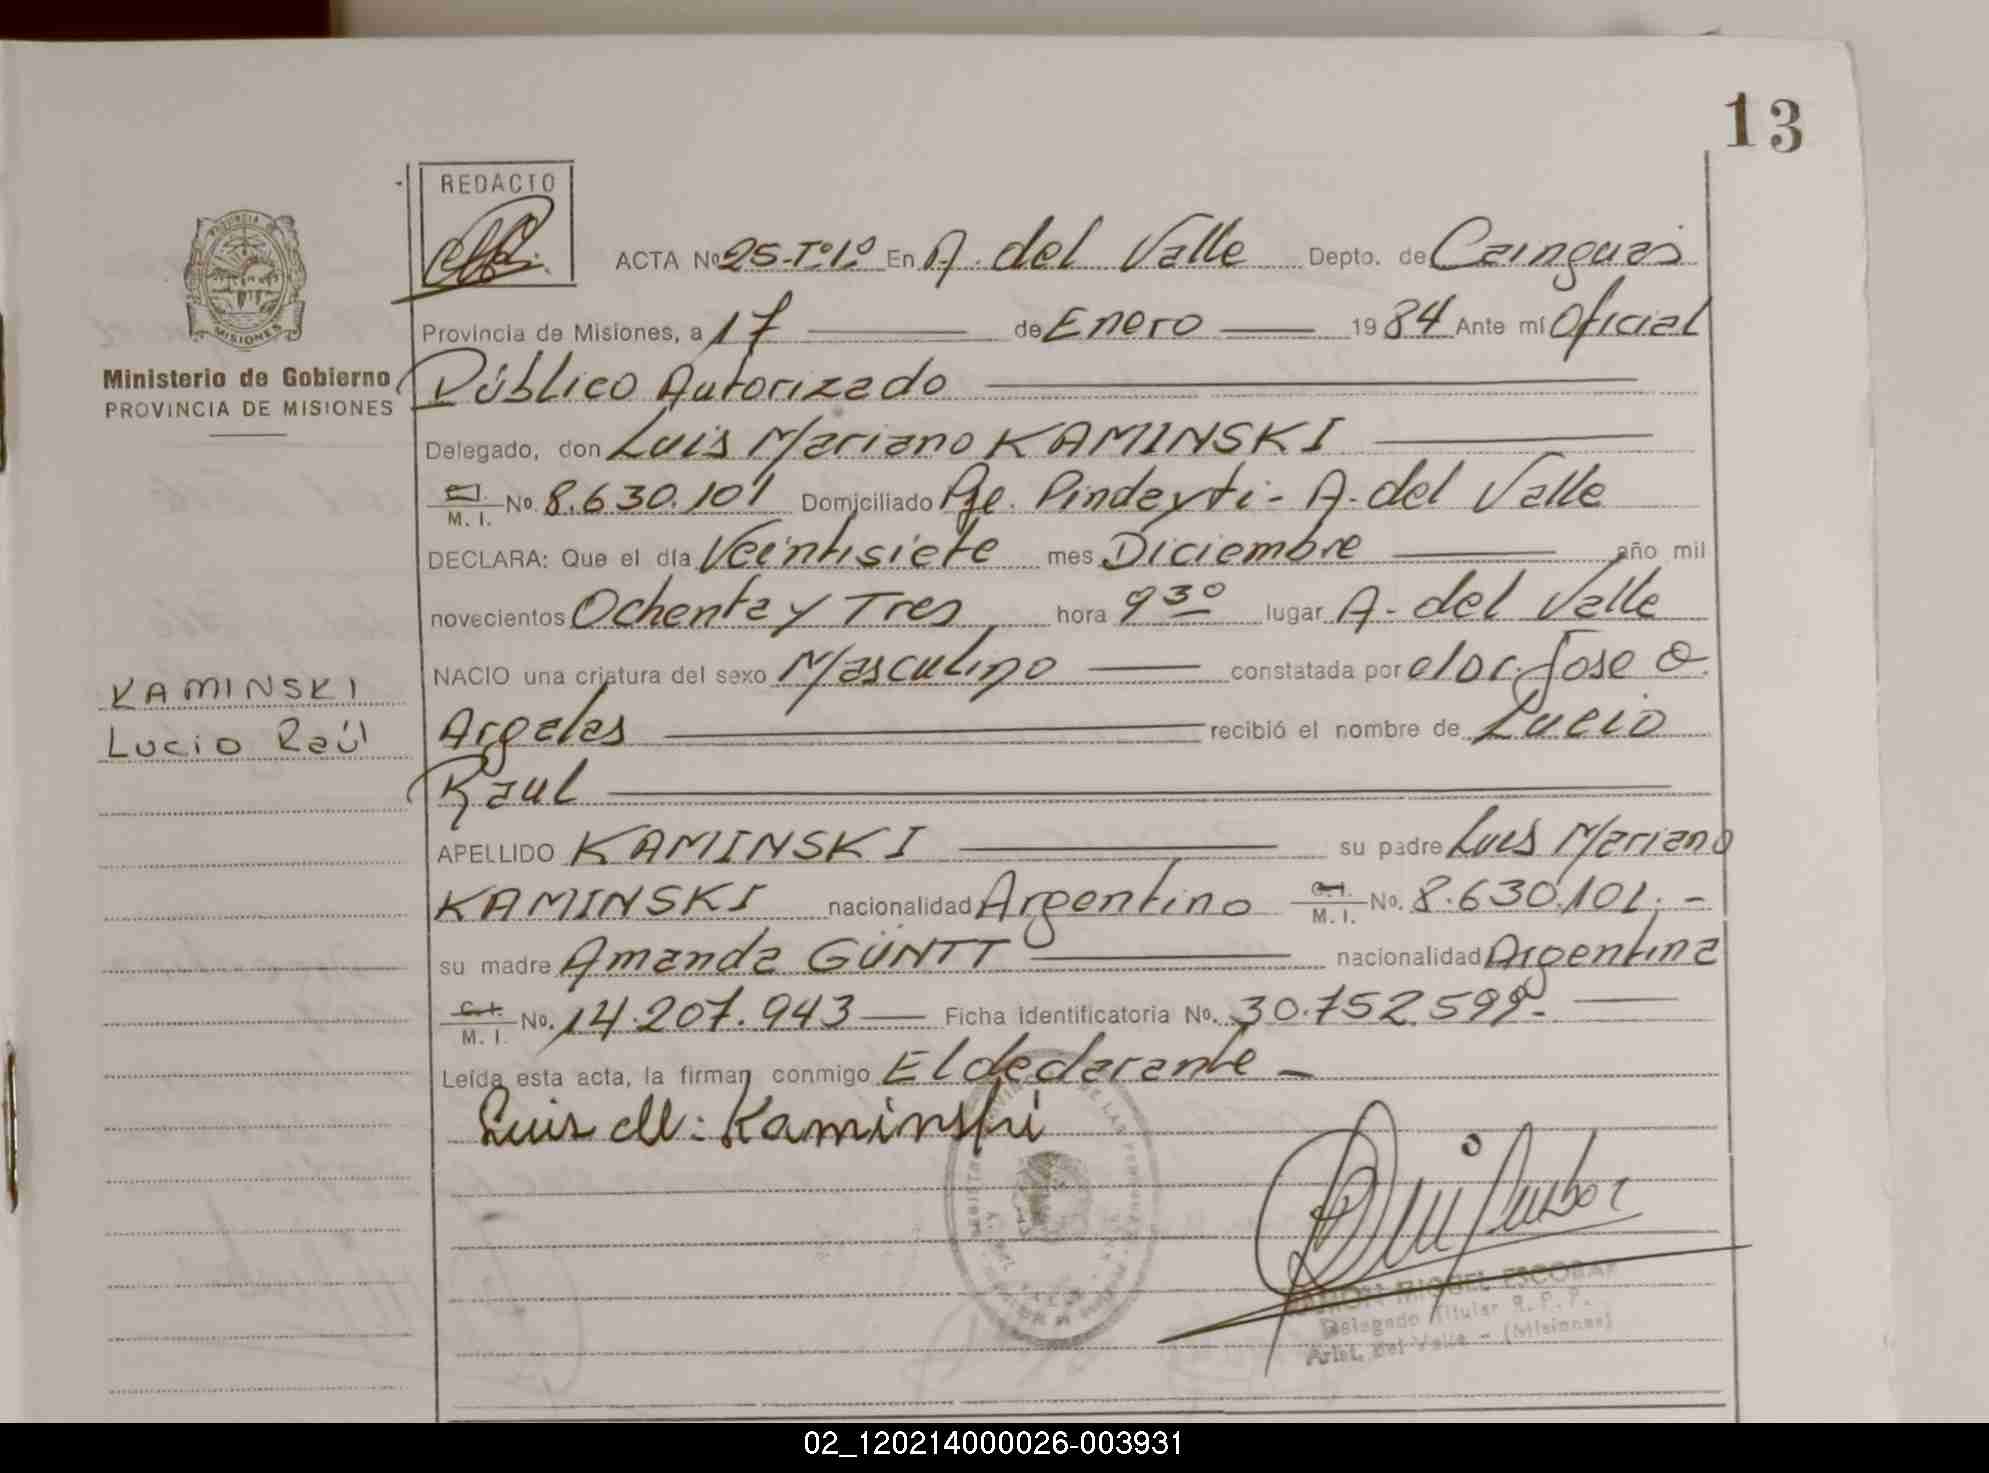 13
REDACTO
PROVINCIA DE
MISIONES
Ministerio de Gobierno
PROVINCIA DE MISIONES
ACTA Nº 25-Tº1º En A. del Valle Depto. de Cainguas
Provincia de Misiones, a 17 de Enero 1984 Ante mí Oficial
Público Autorizado
Delegado, don Luis Mariano KAMINSKI
C.I. M. I. No. 8.630.101 Domiciliado Pje. Pindayti - A. del Valle
DECLARA: Que el día Veintisiete mes Diciembre año mil
novecientos Ochenta y Tres hora 9 30 lugar A. del Valle
NACIO una criatura del sexo Masculino constatada por el Dr. Jose O.
KAMINSKI
Lucio Raúl
Argeles recibió el nombre de Lucio
Raul
APELLIDO KAMINSKI su padre Luis Mariano
KAMINSKI nacionalidad Argentino C.I. M. I. No. 8.630.101.-
su madre Amanda GÜNTT nacionalidad Argentina
C.I. M. I. No. 14.207.943 Ficha Identificatoria No. 30.752.599.-
Leída esta acta, la firman conmigo El declarante -
Luis M. Kaminski
RAMON MIGUEL ESCOBAR
Delegado Titular R. P. P.
Arist. del Valle - (Misiones)
02_120214000026-003931